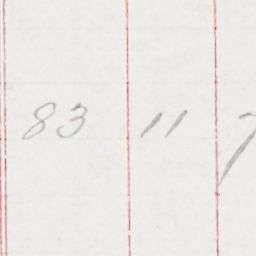 83 11 7